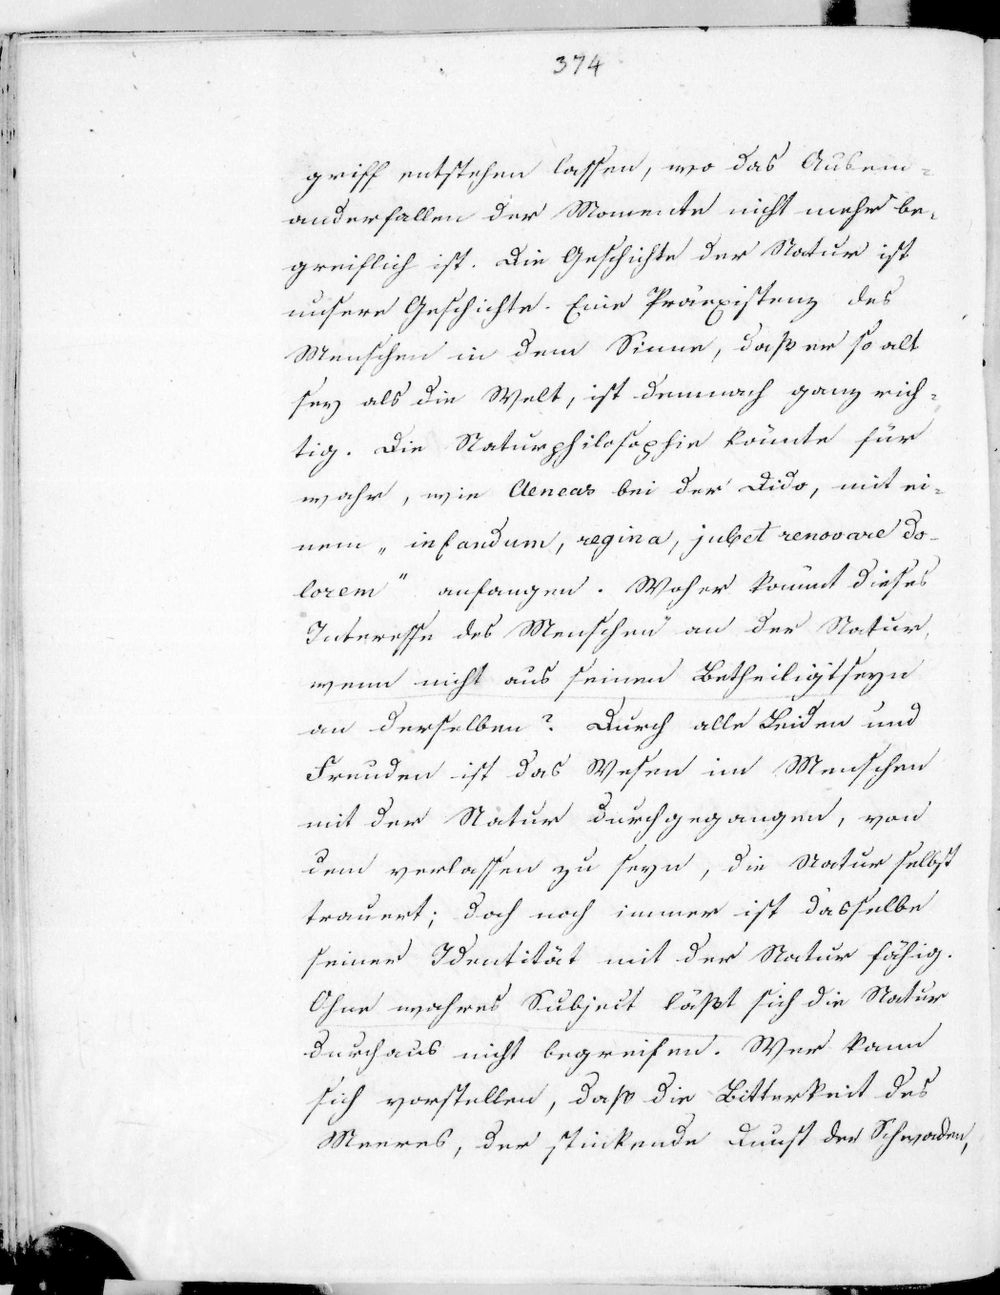 374
griff entstehen lassen, wo das Ausein=
anderfallen der Momente nicht mehr be=
greiflich ist. Die Geschichte der Natur ist
unsere Geschichte. Eine Präexistenz des
Menschen in dem Sinne, daß er so alt
sey als die Welt, ist demnach ganz rich=
tig. Die Naturphilosophie könnte für
wahr, wie Aeneas bei der Dido, mit ei=
nem „infandum, regina, jubet renovare do-
lorem" anfangen. Woher kommt dieses
Interesse des Menschen an der Natur,
wenn nicht aus seinem Betheiligtseyn
an derselben? Durch alle Leiden und
Freuden ist das Wesen im Menschen
mit der Natur durchgegangen, von
dem verlassen zu seyn, die Natur selbst
trauert; doch noch immer ist dasselbe
seiner Identität mit der Natur fähig.
Ohne wahres Subject läßt sich die Natur
durchaus nicht begreifen. Wer kann
sich vorstellen, daß die Bitterkeit des
Meeres, der stinkende Dunst der Schwaden,